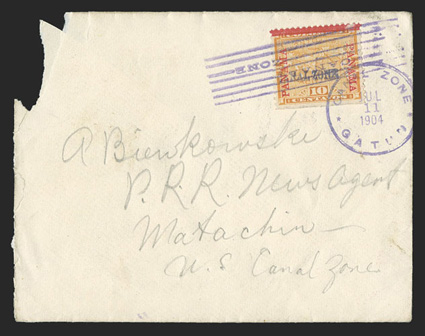 CANAL ZONE
PANAMA
PANAMA
10
CANAL ZONE
JUL
11
1904
GATUN
A Bienkowski
P.R.R. News Agent
Matachin
U.S Canal Zone